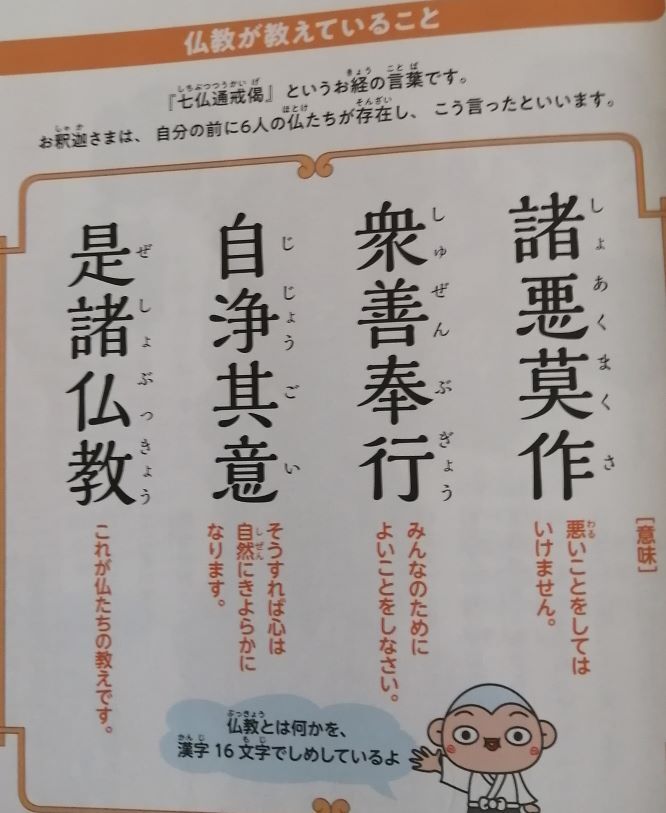 仏教が教えていること
『七仏通戒偈』というお経の言葉です。
お釈迦さまは、自分の前に6人の仏たちが存在し、こう言ったといいます。
諸悪莫作
しょあくまくさ
[意味]
悪いことをしては
いけません。
衆善奉行
しゅぜんぶぎょう
みんなのために
よいことをしなさい。
自浄其意
じじょうごい
そうすれば心は
自然にきよらかに
なります。
是諸仏教
ぜしょぶっきょう
これが仏たちの教えです。
仏教とは何かを、
漢字16文字でしめしているよ